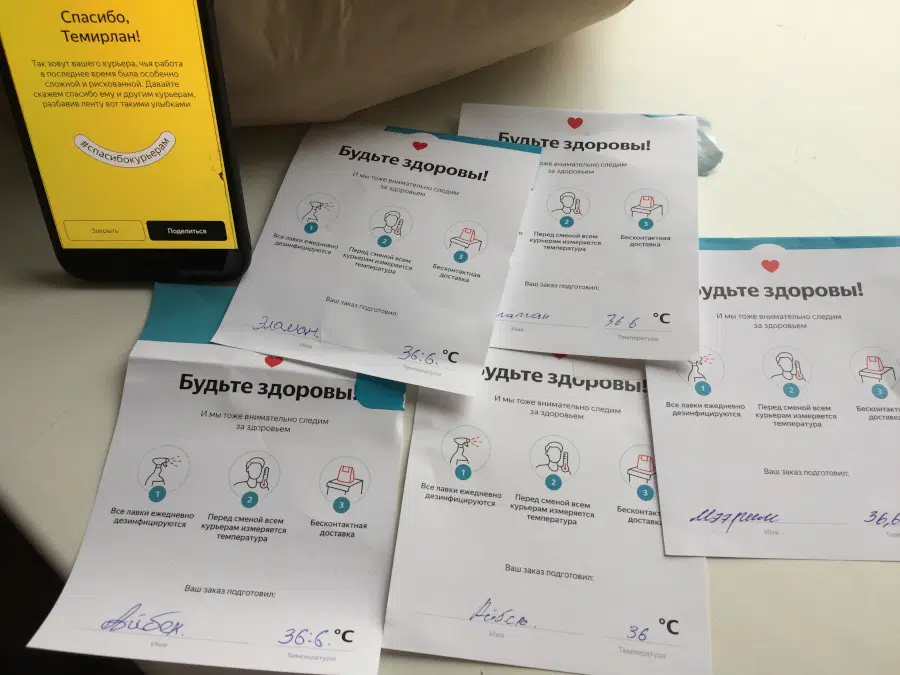 Спасибо,
Темирлан!
Так зовут вашего курьера, чья работа
в последнее время была особенно
сложной и рискованной. Давайте
скажем спасибо ему и другим курьерам,
разбавив ленту вот такими улыбками
#спасибокурьерам
Закрыть
Поделиться
Будьте здоровы!
И мы тоже внимательно следим
за здоровьем
1
Все лавки ежедневно
дезинфицируются
2
Перед сменой всем
курьерам измеряется
температура
3
Бесконтактная
доставка
Ваш заказ подготовил:
Эламан.
Имя
36:6.°C
Температура
Будьте здоровы!
тоже внимательно следим
за здоровьем
2
Перед сменой всем
курьерам измеряется
температура
3
Бесконтактная
доставка
Ваш заказ подготовил:
ламан
Имя
36 6 °C
Температура
удьте здоровы!
И мы тоже внимательно следим
за здоровьем
1
Все лавки ежедневно
дезинфицируются
2
Перед сменой всем
курьерам измеряется
температура
3
Бесконтакт
доставка
Ваш заказ подготовил:
Мээрим
Имя
36,6
Будьте здоровы!
И мы тоже внимательно следим
за здоровьем
1
Все лавки ежедневно
дезинфицируются
2
Перед сменой всем
курьерам измеряется
температура
3
Бесконтактная
доставка
Ваш заказ подготовил:
Айбек.
Имя
36:6.°C
Температура
удьте здоровы!
И мы тоже внимательно следим
за здоровьем
1
Все лавки ежедневно
дезинфицируются
2
Перед сменой всем
курьерам измеряется
температура
3
Бесконтак
доставк
Ваш заказ подготовил:
Айбек.
Имя
36 °C
Температура